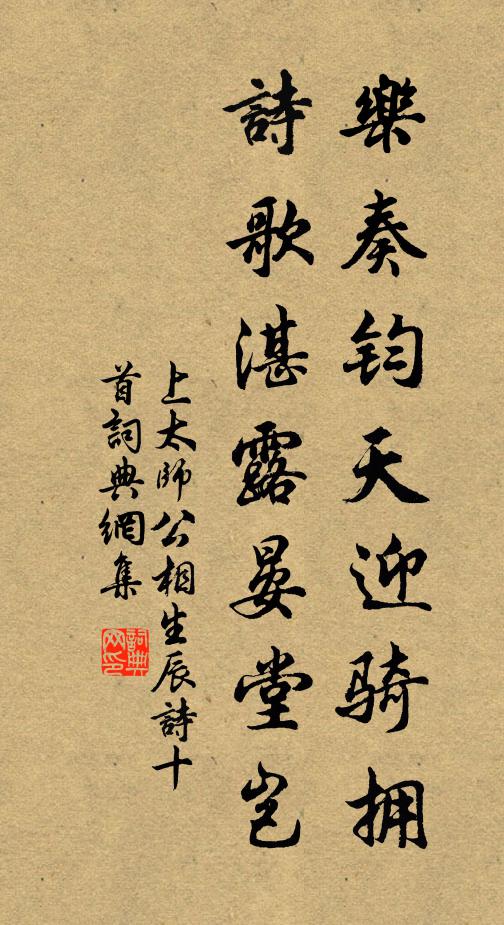 樂奏鈞天迎騎拥
詩歌湛露晏堂岂
上太師公相生辰詩十
首詞典網集
詞典网印